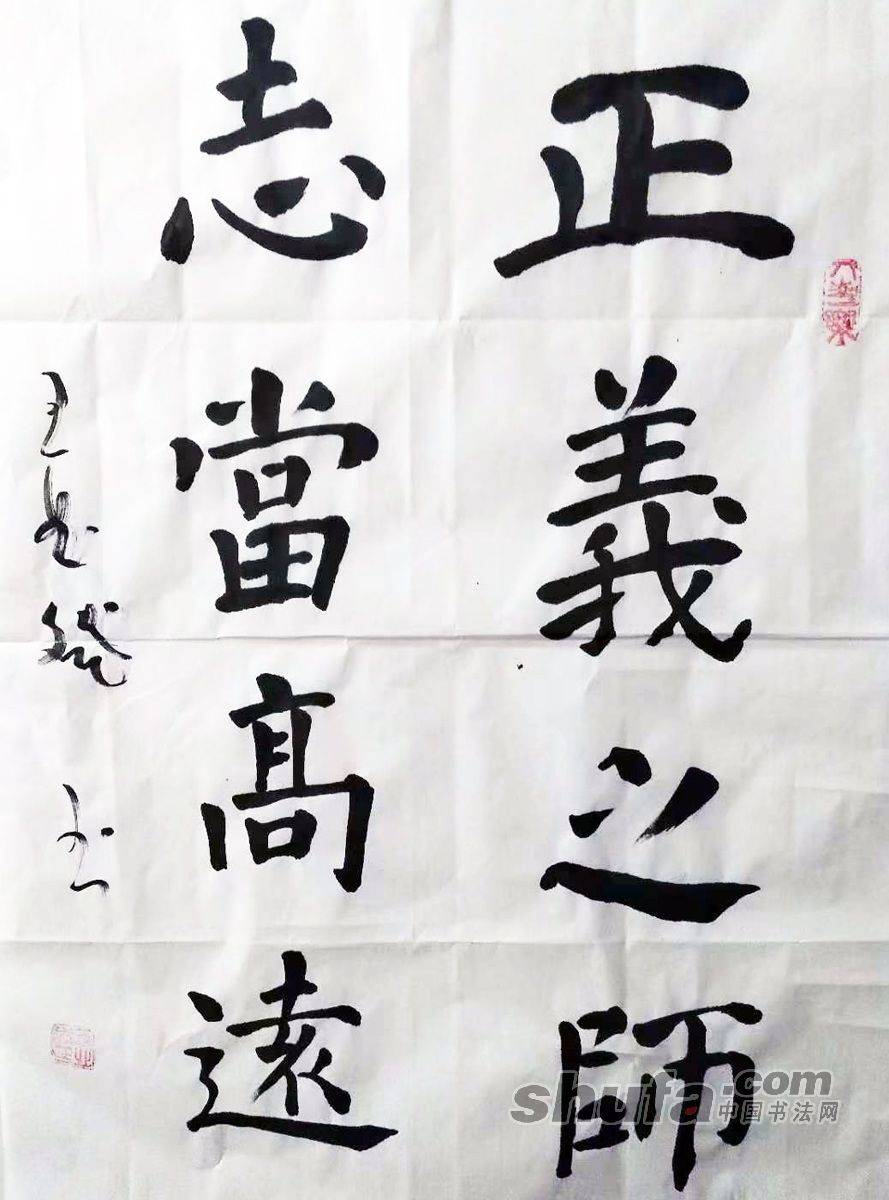 正義之師
志當高遠
shufa.com
中国书法网